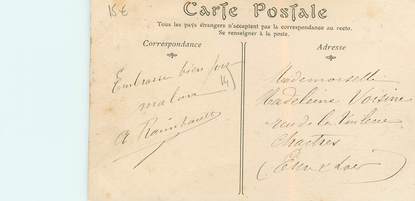 15€
Carte Postale
Tous les pays étrangers n'acceptent pas la correspondance au recto.
Se renseigner à la poste.
Correspondance
Adresse
Embrasse bien fort
A Raimbault
Mademoiselle
Madeleine Voisine
rue de la
Chartres
(Eure & Loir)